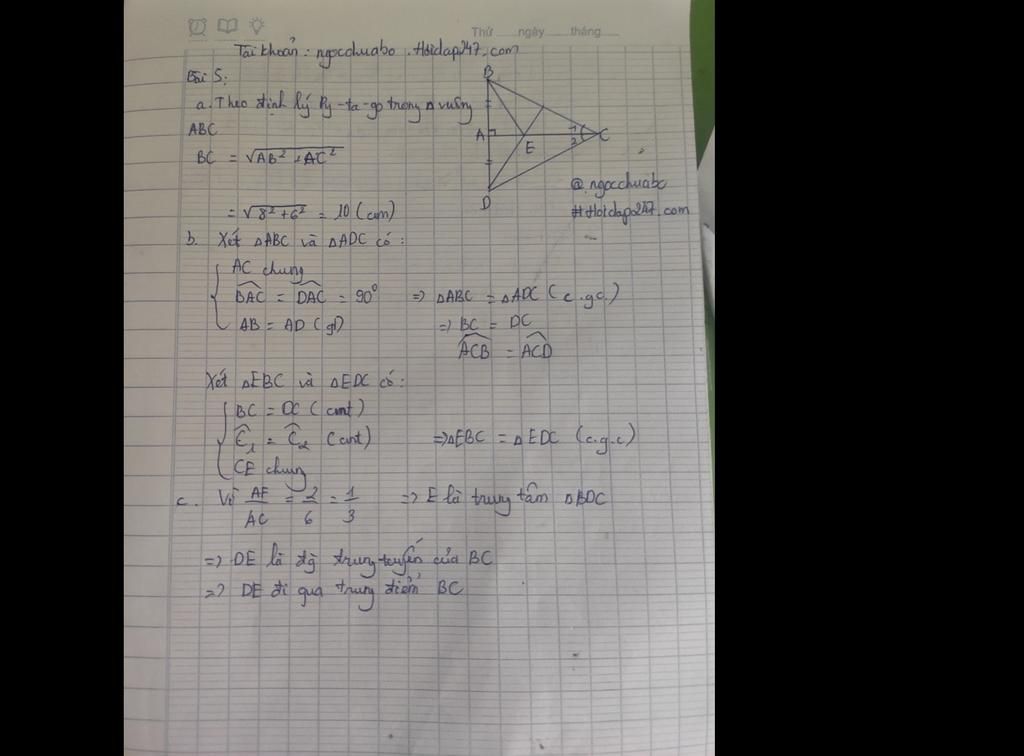 Thứ ngày tháng
Tài khoản: ngocchuabo . Hoidap247.com
Bài 5:
a. Theo định lý Py-ta-go trong Δ vuông
ABC
BC = √AB² + AC²
= √8²+6² = 10 (cm)
B
A
E
1
2
C
D
@ ngocchuabc
# Hoidap247.com
b. Xét ΔABC và ΔADC có:
AC chung
BAC = DAC = 90° => ΔABC = ΔADC (c.gc)
AB = AD (gt) => BC = DC
ACB = ACD
Xét ΔEBC và ΔEDC có:
BC = DC (cmt)
C₁ = C₂ (cmt) => ΔEBC = ΔEDC (c.g.c)
CE chung
c. Vì AE/AC = 2/6 = 1/3 => E là trung tâm ΔBDC
=> DE là đg trung tuyến của BC
=> DE đi qua trung điểm BC